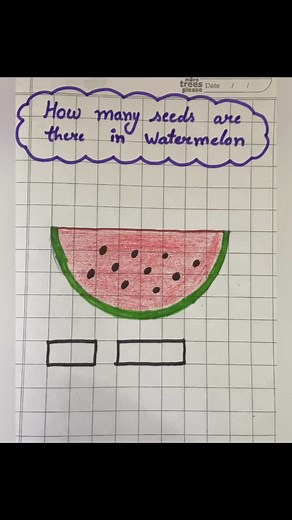 more
trees
please
Date / /
How many seeds are
there in watermelon